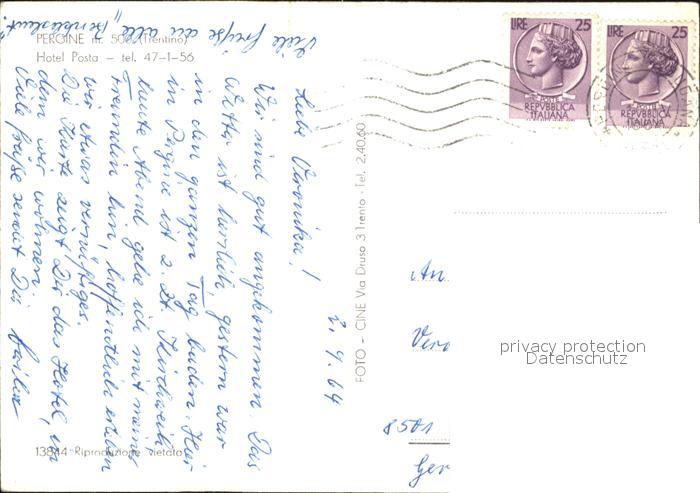 Viele Grüße an alle „
PERGINE m. 500 (Trentino)
Hotel Posta – tel. 47-1-56
2. 9. 64
Liebe Veronika!
Wir sind gut angekommen. Das
Wetter ist herrlich, gestern war
in den ganzen Tag baden. Hier
in Pergine ist z. Zt. Kirchweih,
heute Abend gehe ich mit meiner
Freundin hin, hoffentlich erleben
wir etwas vernünftiges.
Die Karte zeigt Dir das Hotel, in
dem wir wohnen.
Viele Grüße sendet Dir
13844 Riproduzione vietata
FOTO - CINE Via Druso 3 Trento - Tel. 2.40.60
LIRE 25
POSTE
REPVBBLICA
ITALIANA
LIRE 25
POSTE
REPVBBLICA
ITALIANA
An
Vero
8501
Ger
privacy protection
Datenschutz